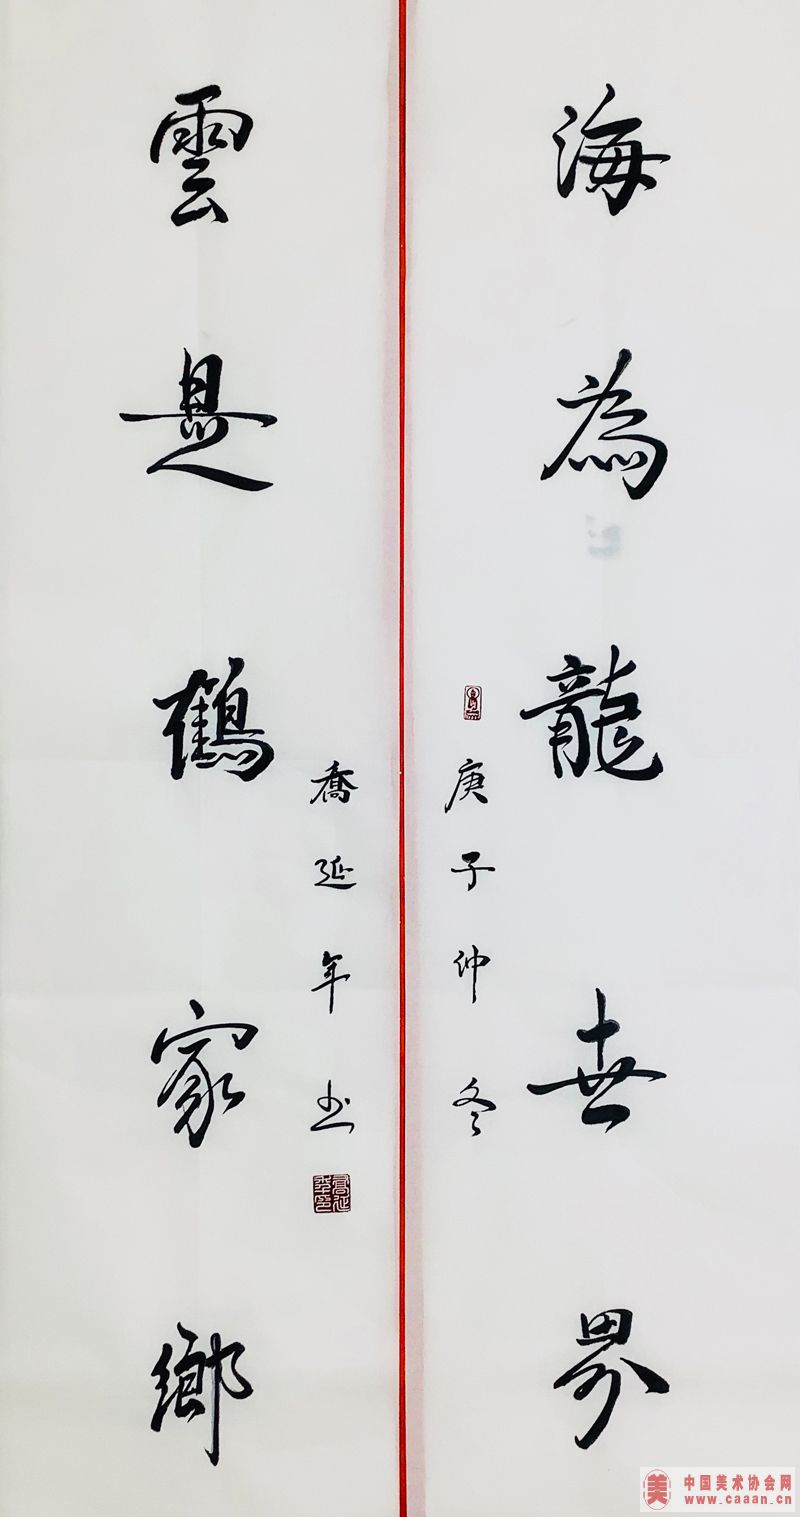 海為龍世界
庚子仲冬
雲是鶴家鄉
喬延年书
美
中国美术协会网
www.caaan.cn